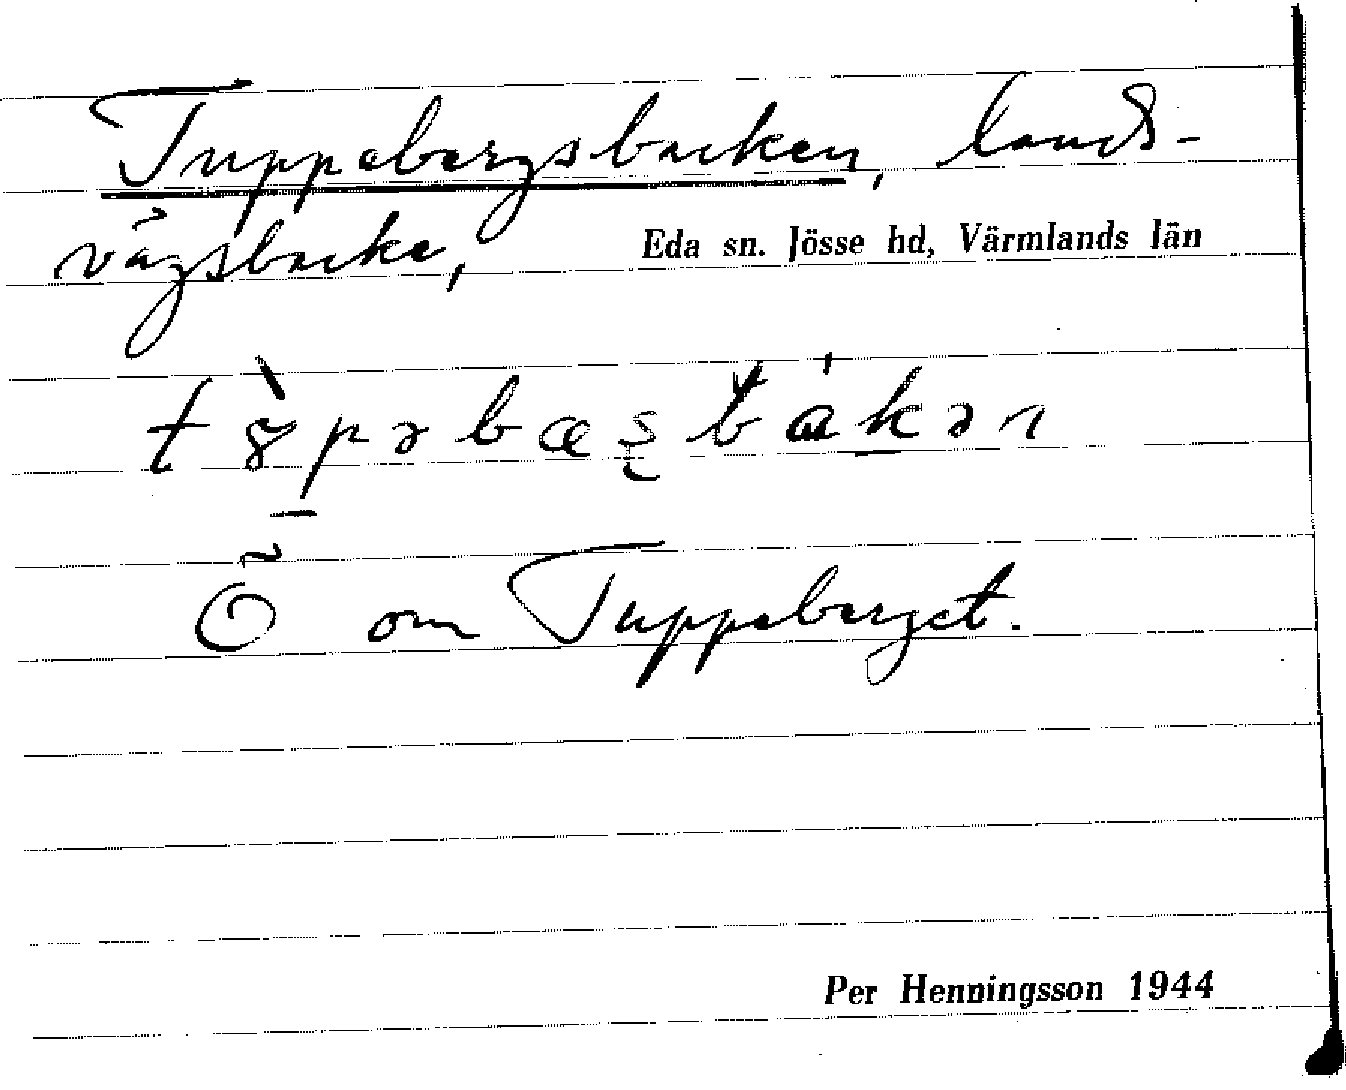 Tuppebergsbacken, lands-
vägsbacke, Eda sn. Jösse hd, Värmlands län
Ö om Tuppeberget.
Per Henningsson 1944